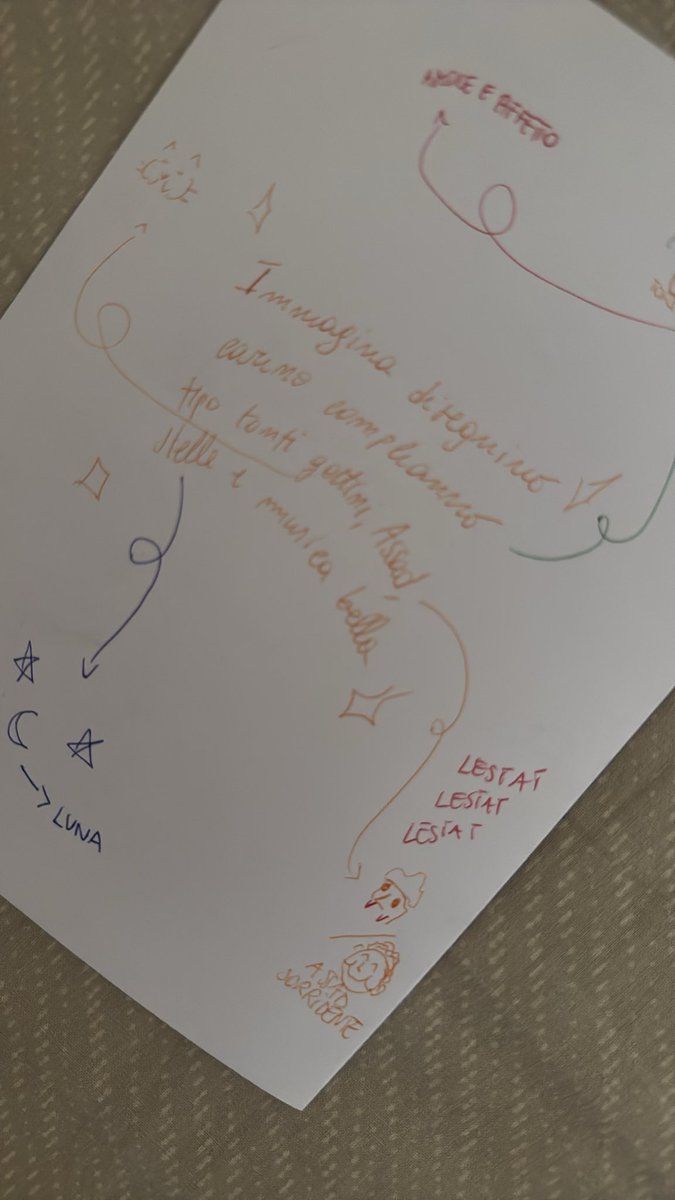 AMORE E AFFETTO
Immagina disegnino
carino compleanno
tipo tanti gattini, Assad,
stelle e musica bella
LUNA
LESTAT
LESTAT
LESTAT
ASSAD
SORRIDENTE